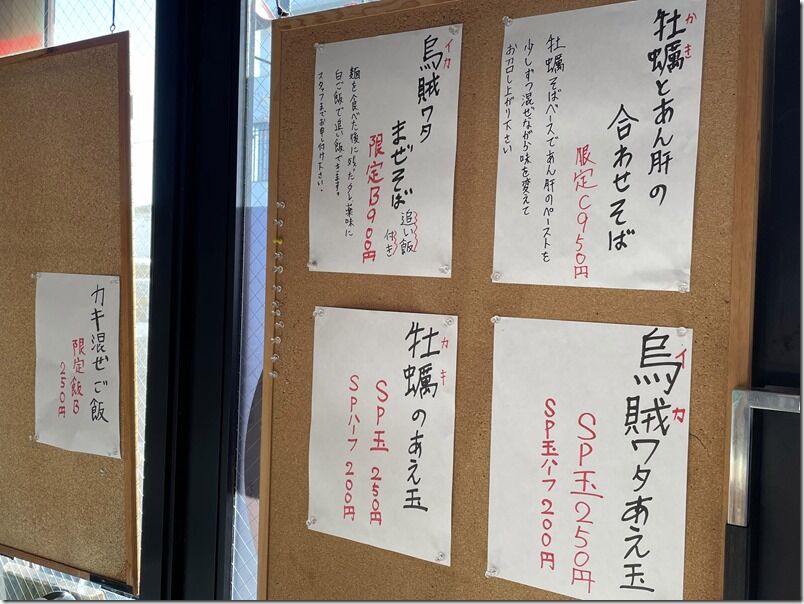 牡蠣とあん肝の
かき
合わせそば
限定C950円
牡蠣そばベースであん肝のペーストを
少しずつ混ぜながら味を変えて
お召し上がり下さい
烏賊ワタ
イカ
まぜそば
追い飯
付き
限定B900円
麺を食べた後に残ったタレ、薬味に
白ご飯で追い飯できます。
スタッフまでお申し付け下さい。
烏賊ワタあえ玉
イカ
SP玉250円
SP玉ハーフ200円
牡蠣のあえ玉
カキ
SP玉 250円
SPハーフ 200円
カキ混ぜご飯
限定飯B
250円